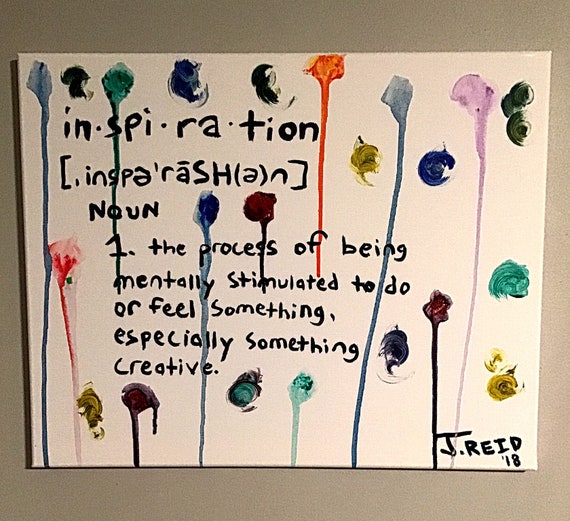 in·spi·ra·tion
[ˌinspəˈrāSH(ə)n]
NOUN
1. the process of being
mentally stimulated to do
or feel something,
especially something
creative.
J.REID
'18